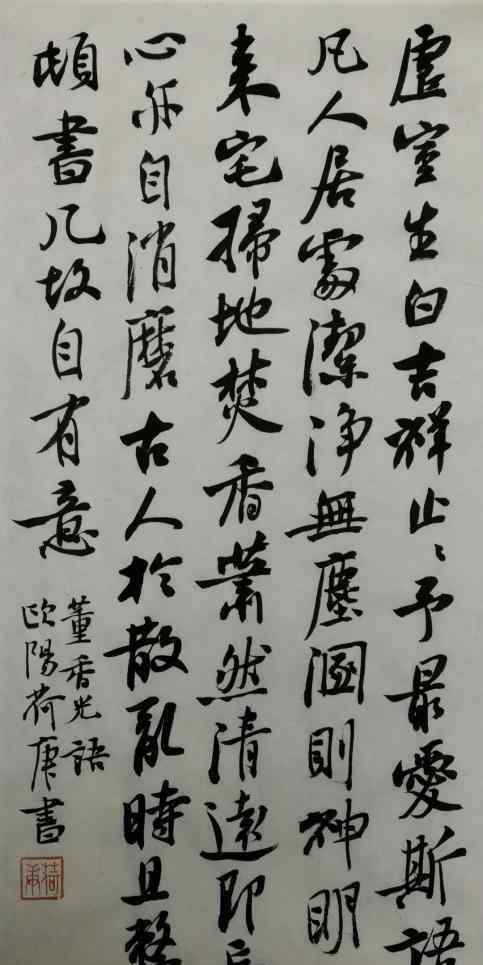 虛室生白吉祥止〻予最愛斯語
凡人居處潔淨無塵溷則神明
来宅掃地焚香蕭然清遠即
心亦自消磨古人於散亂時且整
頓書几故自有意
董香光語
歐陽荷庚書
荷庚